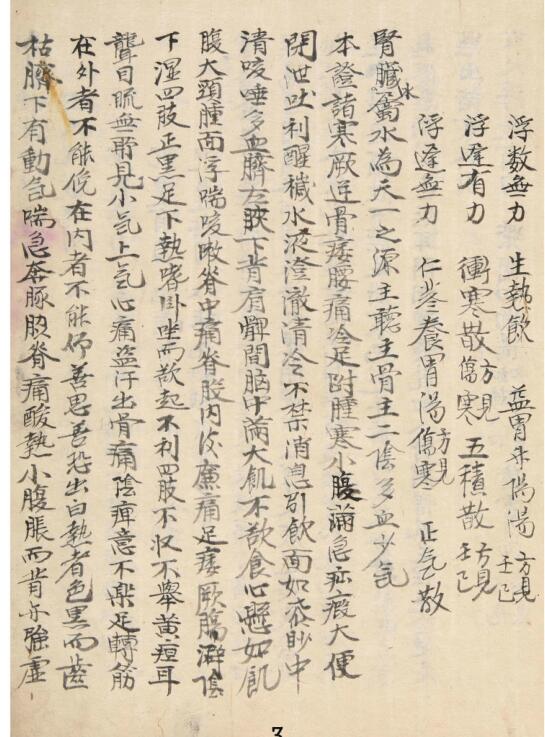 浮数無力 生熟飲 益胃升陽湯方見壬己
浮遅有力 衝寒散方見傷寒 五積散方見壬己
浮遅無力 仁姜養胃湯方見傷寒 正气散
腎臓属水水為天一之源主聴主骨主二陰多血少气
本證諸寒厥逆骨痿腰痛冷足胕腫寒小腹満急疝瘕大便
閉泄吐利醒穢水液澄澈清冷不禁消息引飲面如炭眇中
清咳唾多血臍左脇下背肩髀間脳中満大飢不欲食心懸如飢
腹大頸腫而浮喘咳嗽脊中痛脊股内後廉痛足痿厥腸澼陰
下湿四肢正黒足下熱嗜卧坐而欲起不利四肢不収不挙黄疸耳
聾目䀮無所見小气上气心痛盗汗出骨痛陰痺意不楽足轉筋
在外者不能俛在内者不能仰善思善恐出白熱者色黒而歯
枯臍下有動气喘急奔豚股脊痛酸熱小腹脹而背亦強虚
3